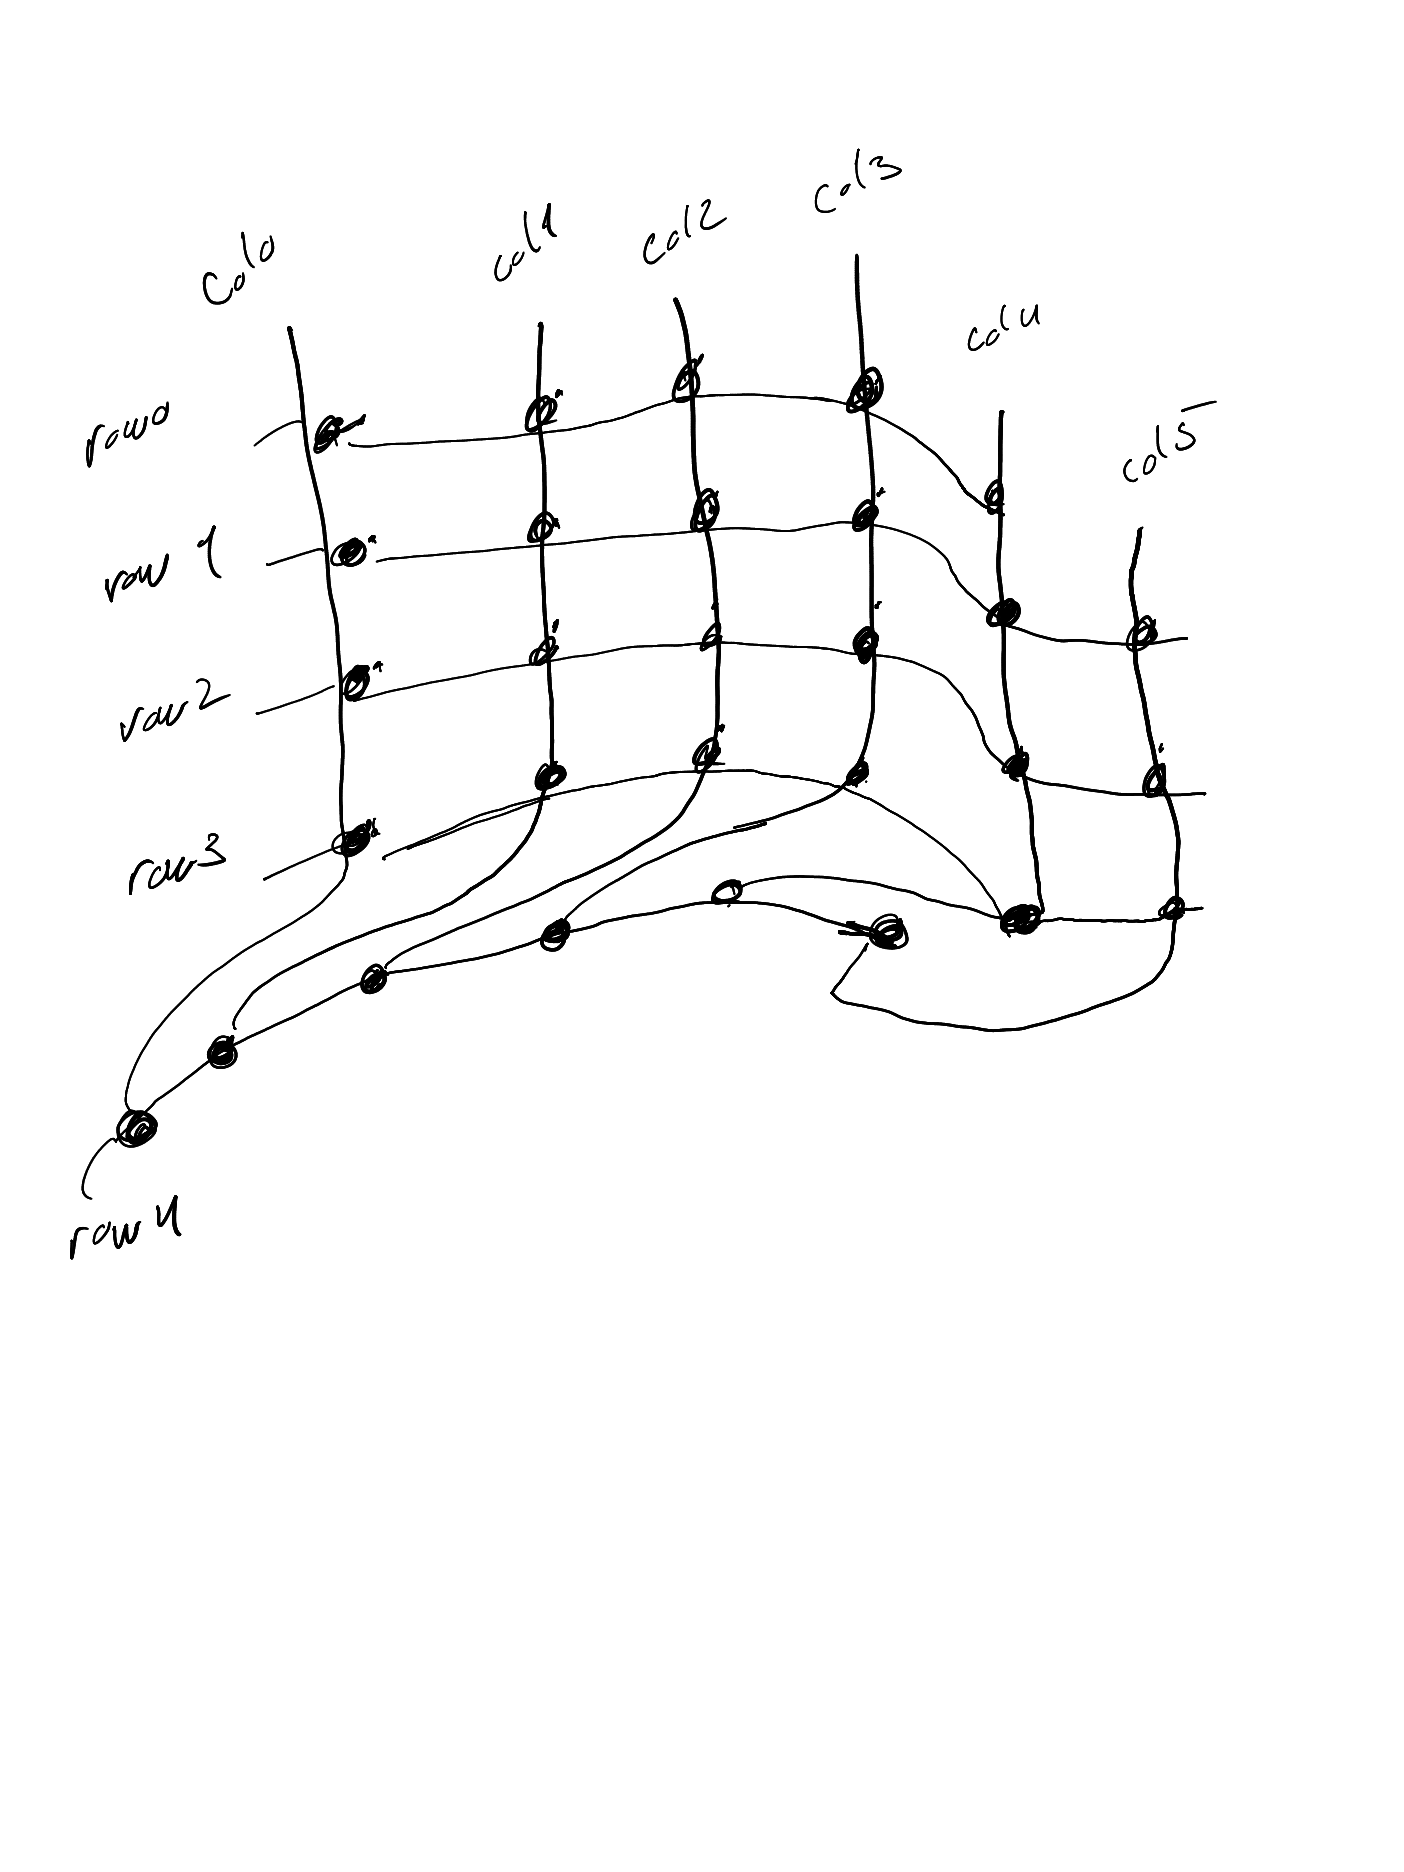 col0
col1
col2
col3
col4
col5
row0
row 1
row2
row3
row4